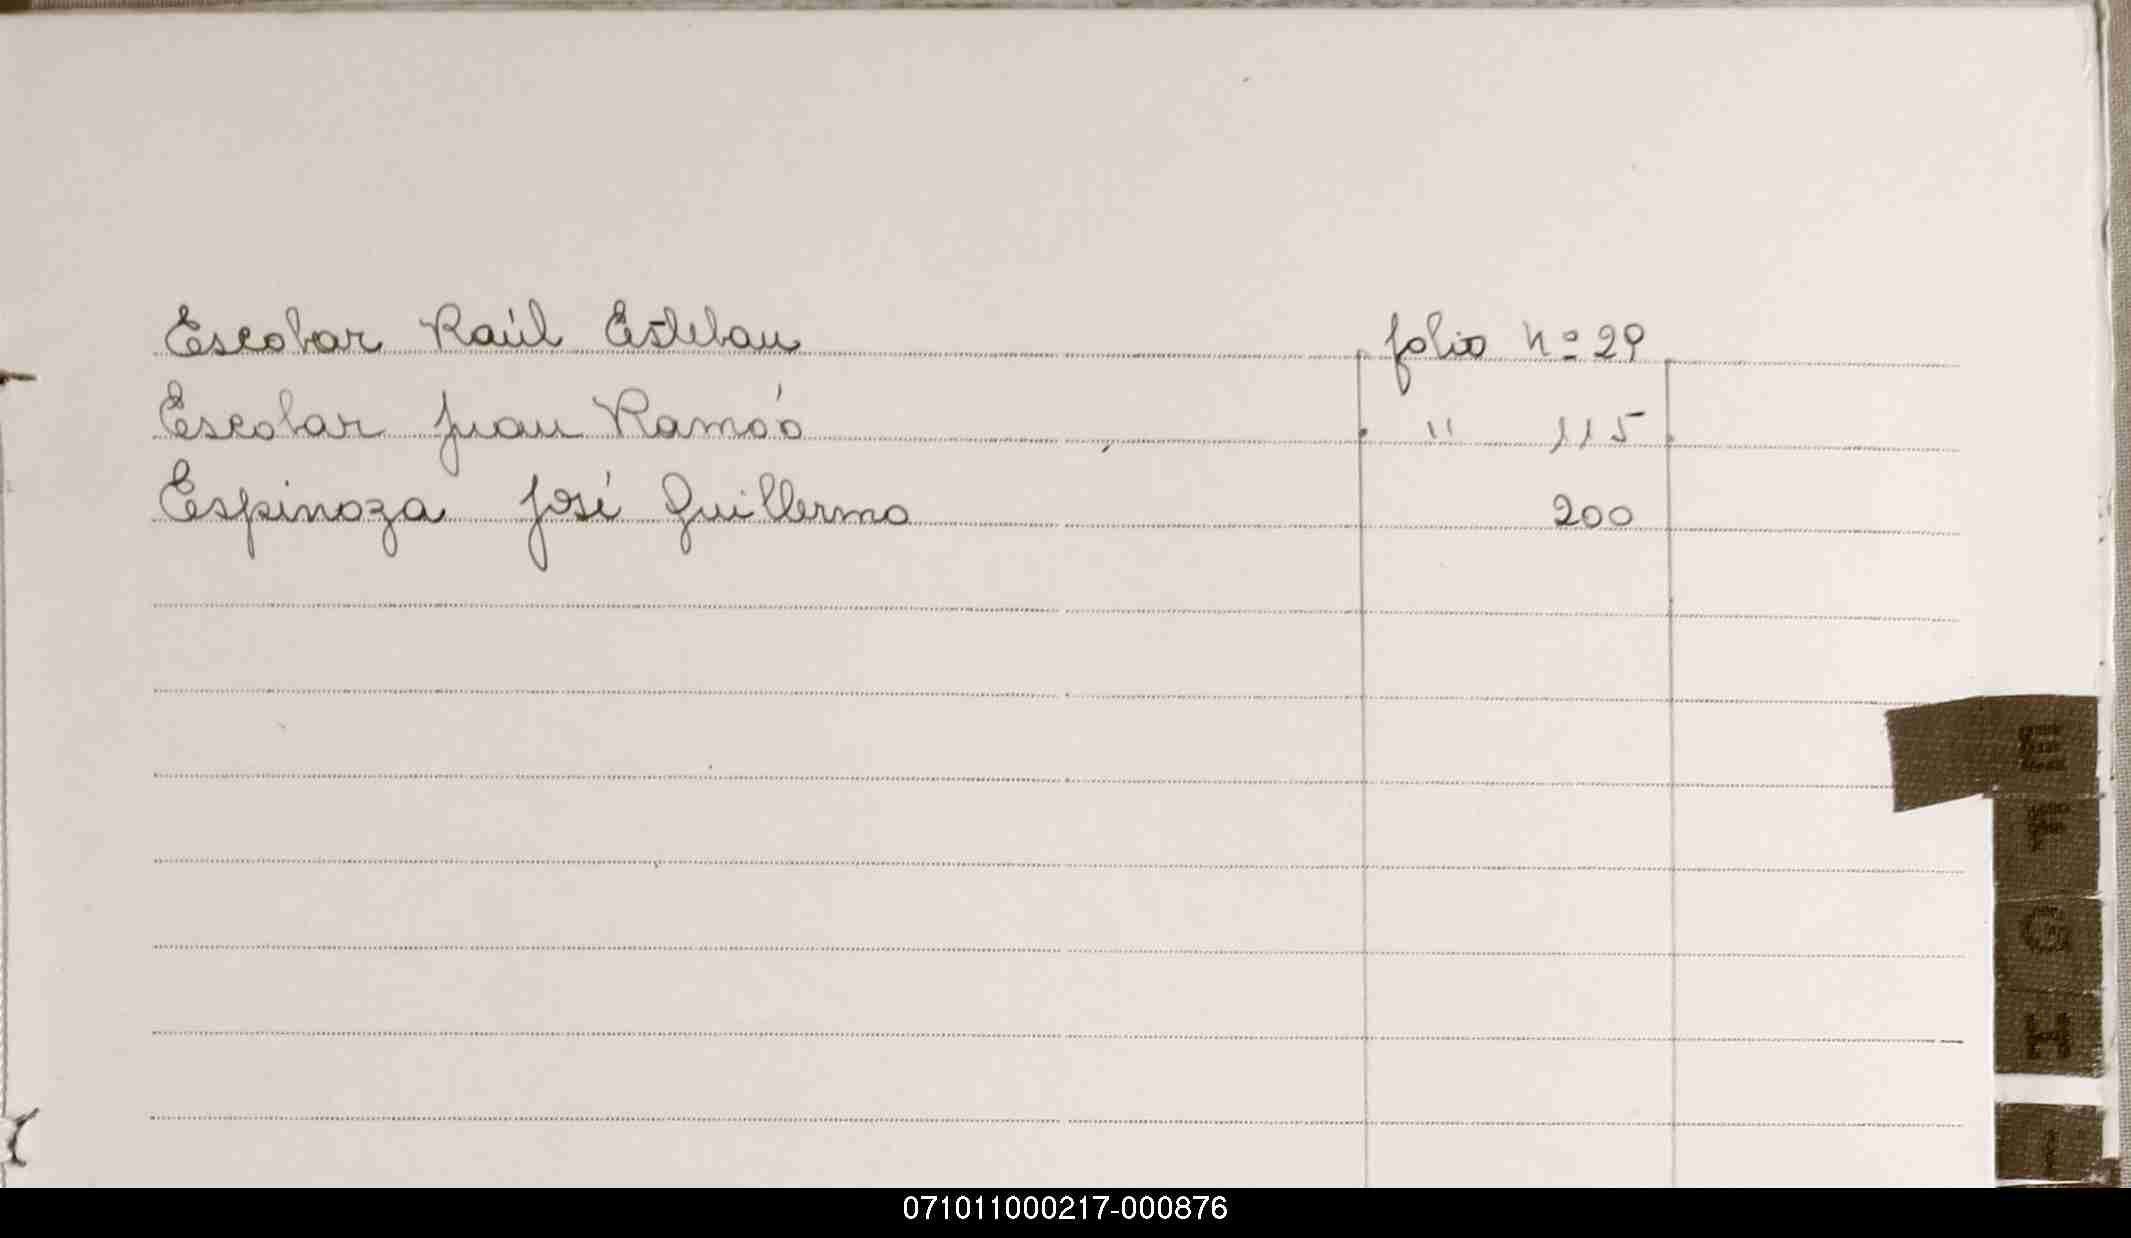 Escobar Raúl Esteban folio nº 29
Escobar Juan Ramóo " 115
Espinoza José Guillermo 200
E
F
G
H
I
071011000217-000876